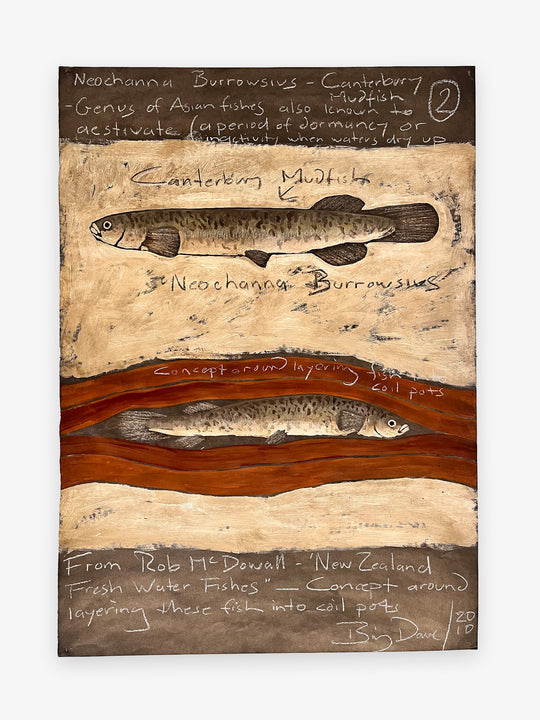 Neochanna Burrowsius - Canterbury
Mudfish
2
- Genus of Asian fishes also known to
aestivate (a period of dormancy or
inactivity when waters dry up
Canterbury Mudfish
Neochanna Burrowsius
Concept around layering fish
coil pots
From Rob McDowall - 'New Zealand
Fresh Water Fishes" — Concept around
layering these fish into coil pots
Big Dave / 20
10